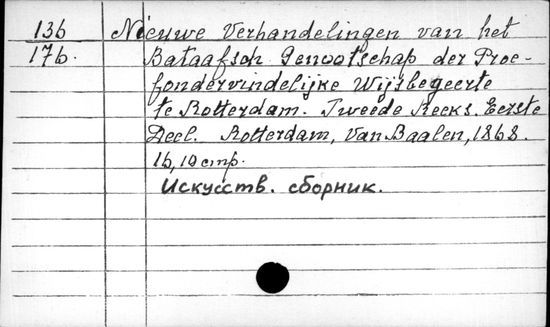 136 Nieuwe Verhandelingen van het
176. Bataafsch Genootschap der Proe-
fondervindelijke Wijsbegeerte
te Rotterdam. Tweede Reeks. Eerste
Deel. Rotterdam, Van Baalen, 1868.
16, 10 стр.
Искусств. сборник.